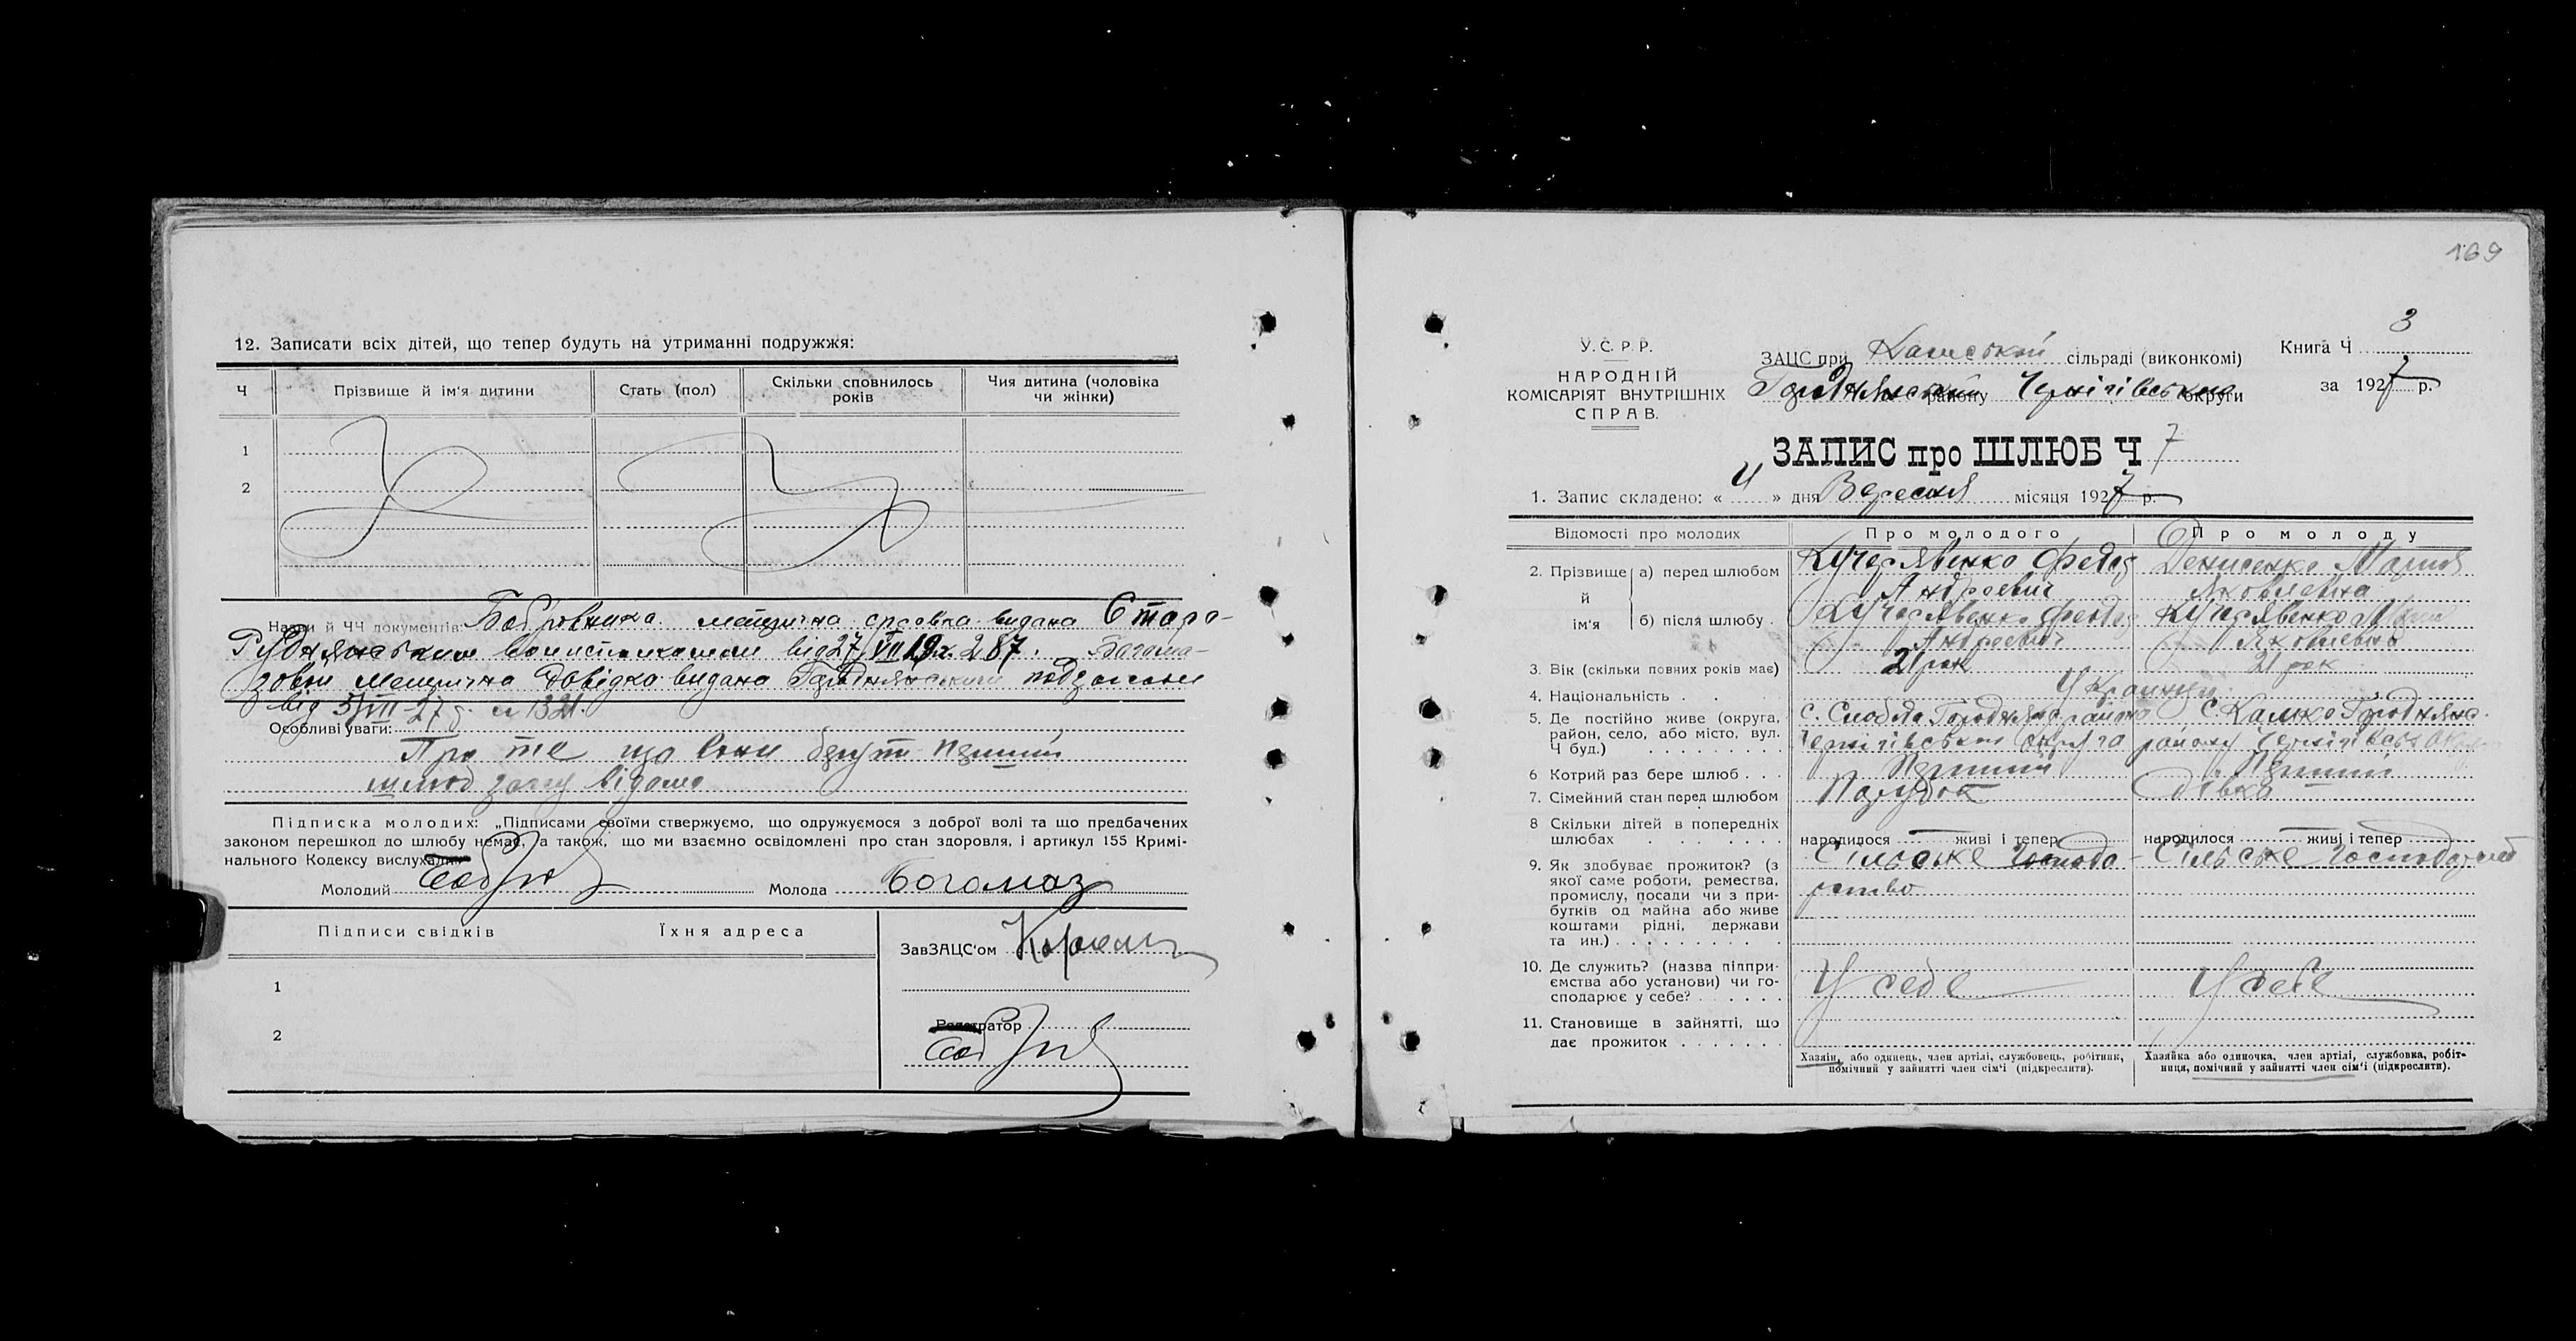 12. Записати всіх дітей, що тепер будуть на утриманні подружжя:
Ч
Прізвище й ім‘я дитини
Стать (пол)
Скільки сповнилось років
Чия дитина (чоловіка чи жінки)
1
2
Назви й ЧЧ документів: Бобровника метрична справка видана Старо-
Руднянським від 27/VII 19 287. Богома-
зовой метрична довідка видана Городнянським
від 5/VIII-27 р. 1321.
Особливі уваги:
Про те що вони беруть перший
шлюб загсу відомо
Підписка молодих: „Підписами своїми ствержуємо, що одружуємося з доброї волі та що предбачених
законом перешкод до шлюбу немає, а також, що ми взаємно освідомлені про стан здоровля, і артикул 155 Кримі-
нального Кодексу вислухали“
Молодий
Молода Богомаз
Підписи свідків
Їхня адреса
ЗавЗАЦС‘ом
1
Реєстратор
2
169
У. С. Р. Р.
НАРОДНІЙ
КОМІСАРІЯТ ВНУТРІШНІХ
СПРАВ.
ЗАЦС при сільраді (виконкомі)
Городнянський району Чернігівська округи
Книга Ч 3
за 1927 р.
ЗАПИС про ШЛЮБ Ч 7
1. Запис складено: « 4 » дня Вересня місяця 1927 р.
Відомості про молодих
Про молодого
Про молоду
2. Прізвище й ім‘я
а) перед шлюбом
Кучерявенко Федор Андреевич
Денисенко Мария Яковлевна
б) після шлюбу
Кучерявенко Федор Андреевич
Кучерявенко Яковлевна
3. Вік (скільки повних років має)
21 рок
21 рок
4. Національність
Українці
5. Де постійно живе (округа, район, село, або місто, вул. Ч буд.)
с. Слобода Городнянс. району Чернігівської округа
с. Камка Городнянс. району Чернігівськ.
6 Котрий раз бере шлюб
Перший
Перший
7. Сімейний стан перед шлюбом
Парубок
Дівка
8 Скільки дітей в попередніх шлюбах
народилося — живі і тепер —
народилося — живі і тепер —
9. Як здобуває прожиток? (з якої саме роботи, ремества, промислу, посади чи з прибутків од майна або живе коштами рідні, держави та ин.)
Сільське Господарство
Сільське
10. Де служить? (назва підприємства або установи) чи господарює у себе?
У себе
У себе
11. Становище в зайнятті, що дає прожиток
Хазяїн, або одинець, член артілі, службовець, робітник, помічний у зайнятті член сім‘ї (підкреслити).
Хазяйка або одиночка, член артілі, службовка, робітниця, помічний у зайнятті член сім‘ї (підкреслити).